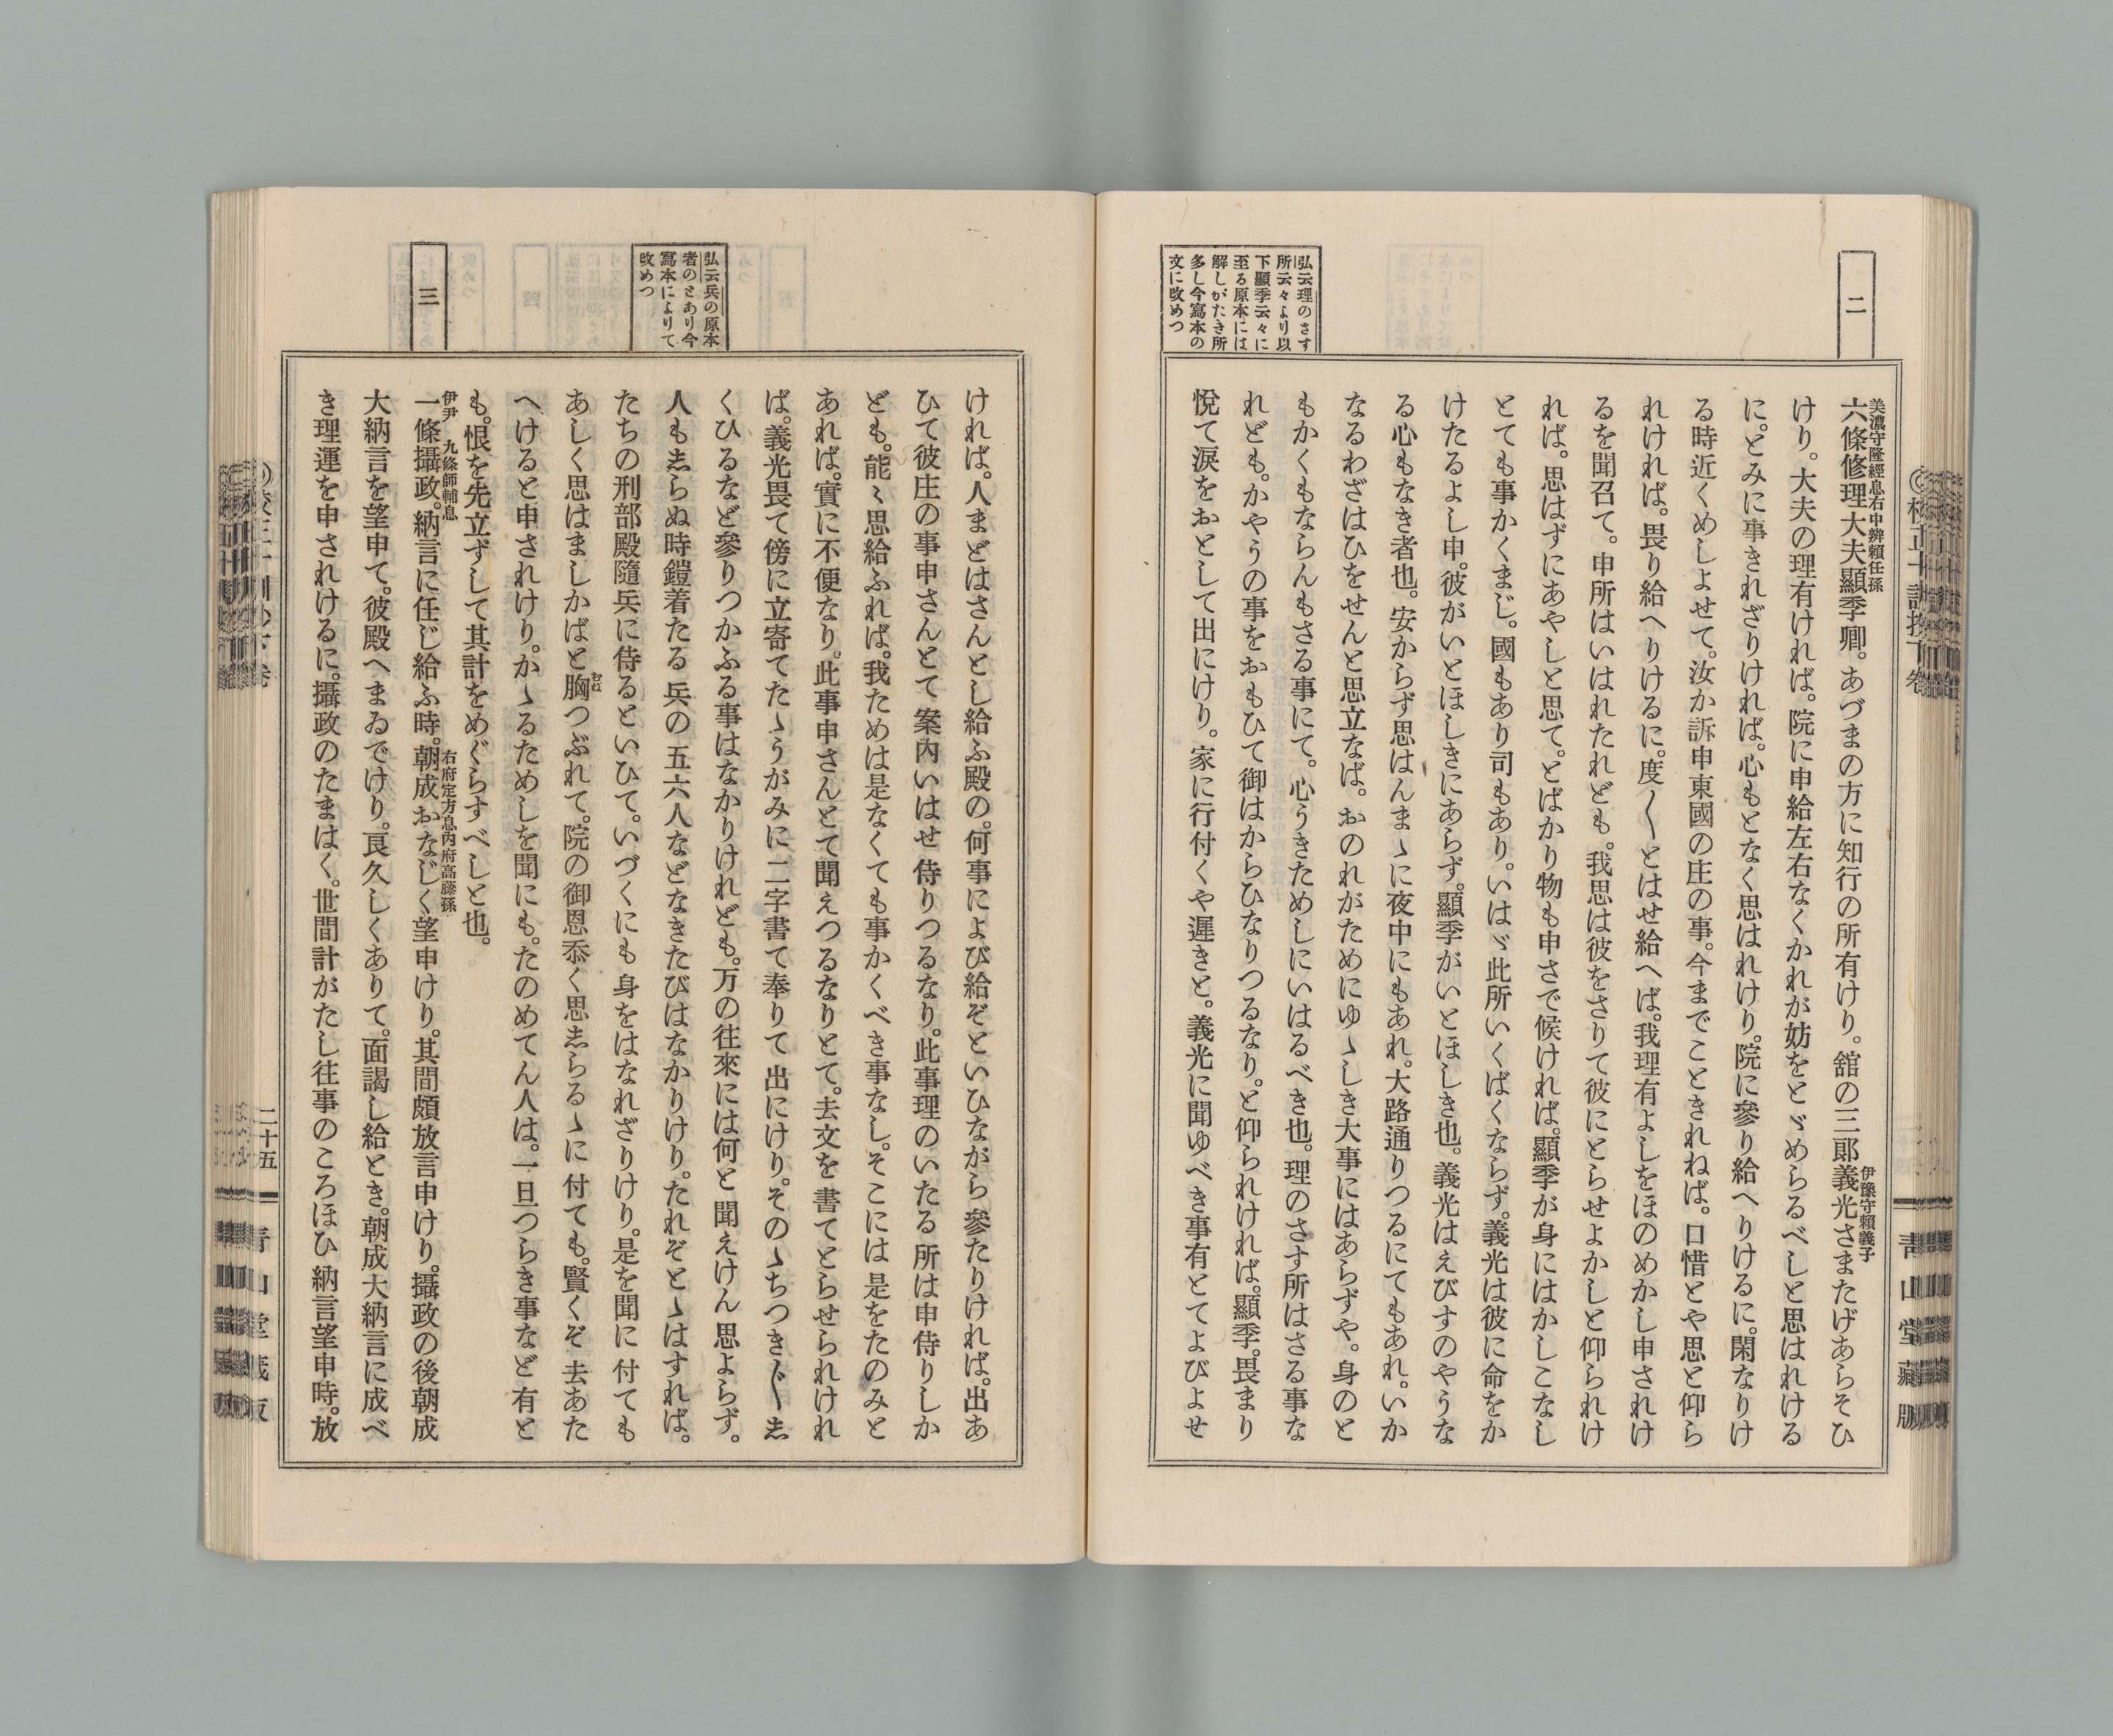 二
弘云理のさす
所云々より以
下顯季云々に
至る原本には
解しがたき所
多し今寫本の
文に改めつ
美濃守隆經息右中辨賴任孫
六條修理大夫顯季卿。あづまの方に知行の所有けり。舘の三郎義光さまたげあらそひ
伊豫守賴義子
けり。大夫の理有ければ。院に申給左右なくかれが妨をとゞめらるべしと思はれける
に。とみに事きれざりければ。心もとなく思はれけり。院に參り給へりけるに。閑なりけ
る時近くめしよせて。汝か訴申東國の庄の事。今までこときれねば。口惜とや思と仰ら
れければ。畏り給へりけるに。度〱とはせ給へば。我理有よしをほのめかし申されけ
るを聞召て。申所はいはれたれども。我思は彼をさりて彼にとらせよかしと仰られけ
れば。思はずにあやしと思て。とばかり物も申さで候ければ。顯季が身にはかしこなし
とても事かくまじ。國もあり司もあり。いはゞ此所いくばくならず。義光は彼に命をか
けたるよし申。彼がいとほしきにあらず。顯季がいとほしき也。義光はえびすのやうな
る心もなき者也。安からず思はんまゝに夜中にもあれ。大路通りつるにてもあれ。いか
なるわざはひをせんと思立なば。おのれがためにゆゝしき大事にはあらずや。身のと
もかくもならんもさる事にて。心うきためしにいはるべき也。理のさす所はさる事な
れども。かやうの事をおもひて御はからひなりつるなり。と仰られければ。顯季。畏まり
悅て淚をおとして出にけり。家に行付くや遲きと。義光に聞ゆべき事有とてよびよせ
青山堂藏版
弘云兵の原本
者のとあり今
寫本によりて
改めつ
三
ければ。人まどはさんとし給ふ殿の。何事によび給ぞといひながら參たりければ。出あ
ひて彼庄の事申さんとて案內いはせ侍りつるなり。此事理のいたる所は申侍りしか
ども。能〻思給ふれば。我ためは是なくても事かくべき事なし。そこには是をたのみと
あれば。實に不便なり。此事申さんとて聞えつるなりとて。去文を書てとらせられけれ
ば。義光畏て傍に立寄てたゝうがみに二字書て奉りて出にけり。そのゝちつき〲し
くひるなど參りつかふる事はなかりけれども。万の往來には何と聞えけん思よらず。
人もしらぬ時鎧着たる兵の五六人などなきたびはなかりけり。たれぞとゝはすれば。
たちの刑部殿隨兵に侍るといひて。いづくにも身をはなれざりけり。是を聞に付ても
あしく思はましかばと胸つぶれて。院の御恩忝く思しらるゝに付ても。賢くぞ去あた
むね
へけると申されけり。かゝるためしを聞にも。たのめてん人は。一旦つらき事など有と
も。恨を先立ずして其計をめぐらすべしと也。
伊尹　九條師輔息
一條攝政。納言に任じ給ふ時。朝成おなじく望申けり。其間頗放言申けり。攝政の後朝成
右府定方息內府高藤孫
大納言を望申て。彼殿へまゐでけり。良久しくありて。面謁し給とき。朝成大納言に成べ
き理運を申されけるに。攝政のたまはく。世間計がたし往事のころほひ納言望申時。放
二十五